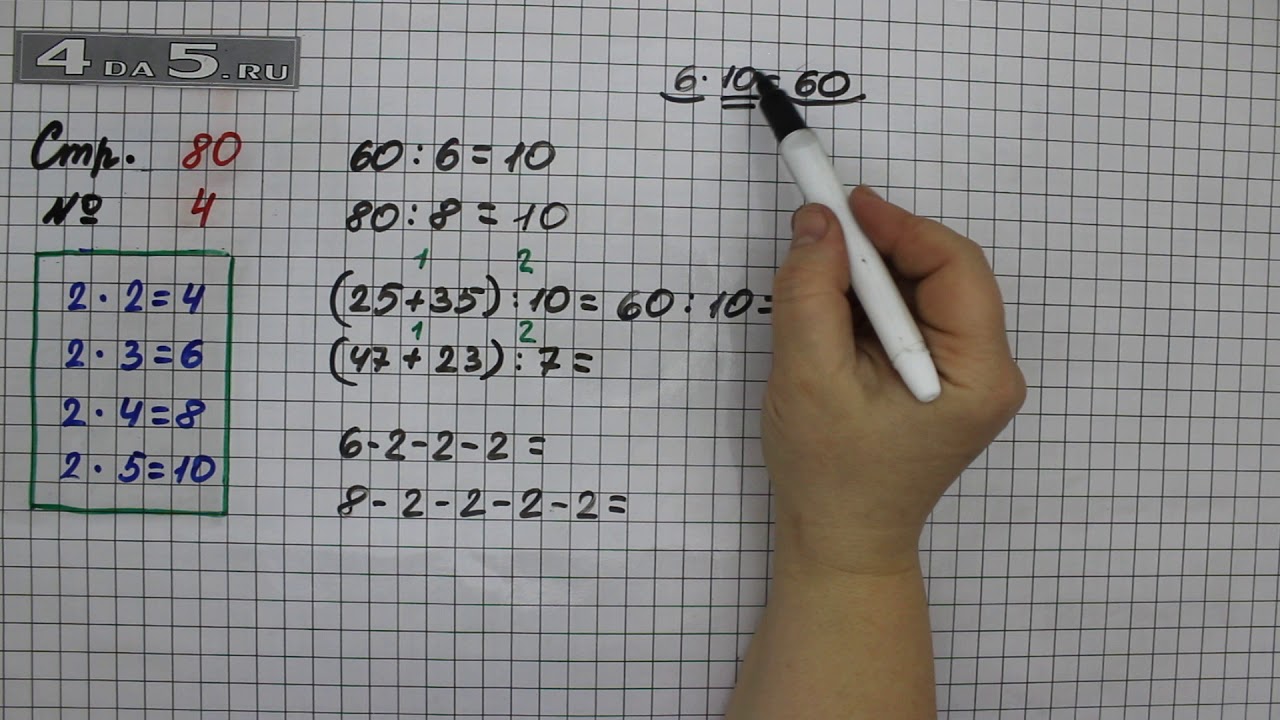 4DA5.RU
6 · 10 = 60
Стр. 80
№ 4
60 : 6 = 10
80 : 8 = 10
1 2
(25 + 35) : 10 = 60 : 10 =
1 2
(47 + 23) : 7 =
6 - 2 - 2 - 2 =
8 - 2 - 2 - 2 - 2 =
2 · 2 = 4
2 · 3 = 6
2 · 4 = 8
2 · 5 = 10